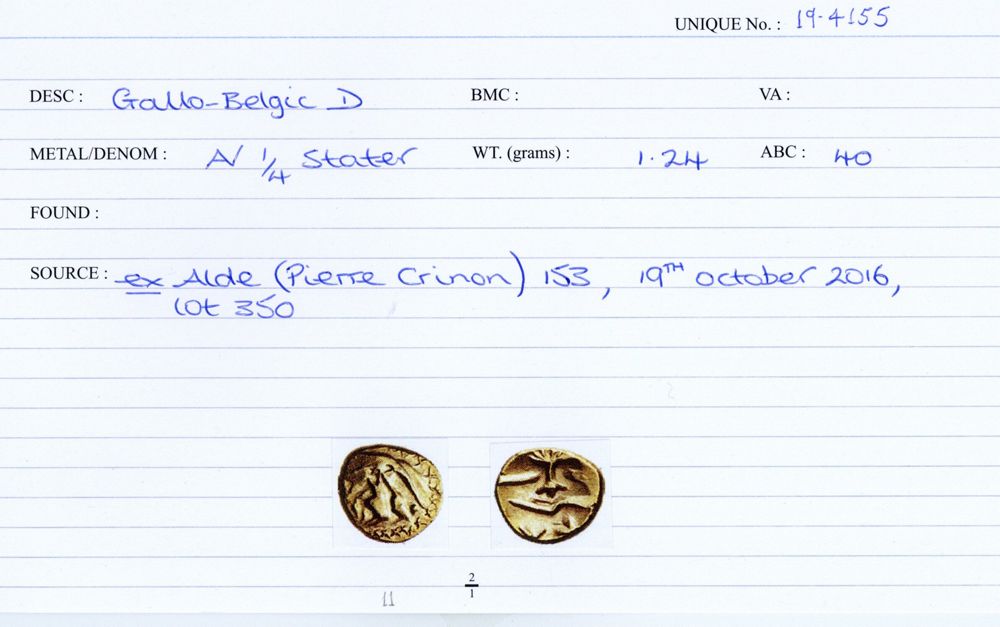 UNIQUE No. : 19-4155
DESC : Gallo-Belgic D BMC : VA :
METAL/DENOM : A/ 1/4 Stater WT. (grams) : 1.24 ABC : 40
FOUND :
SOURCE : ex Alde (Pierre Crinon) 153, 19TH October 2016,
lot 350
2/1
11